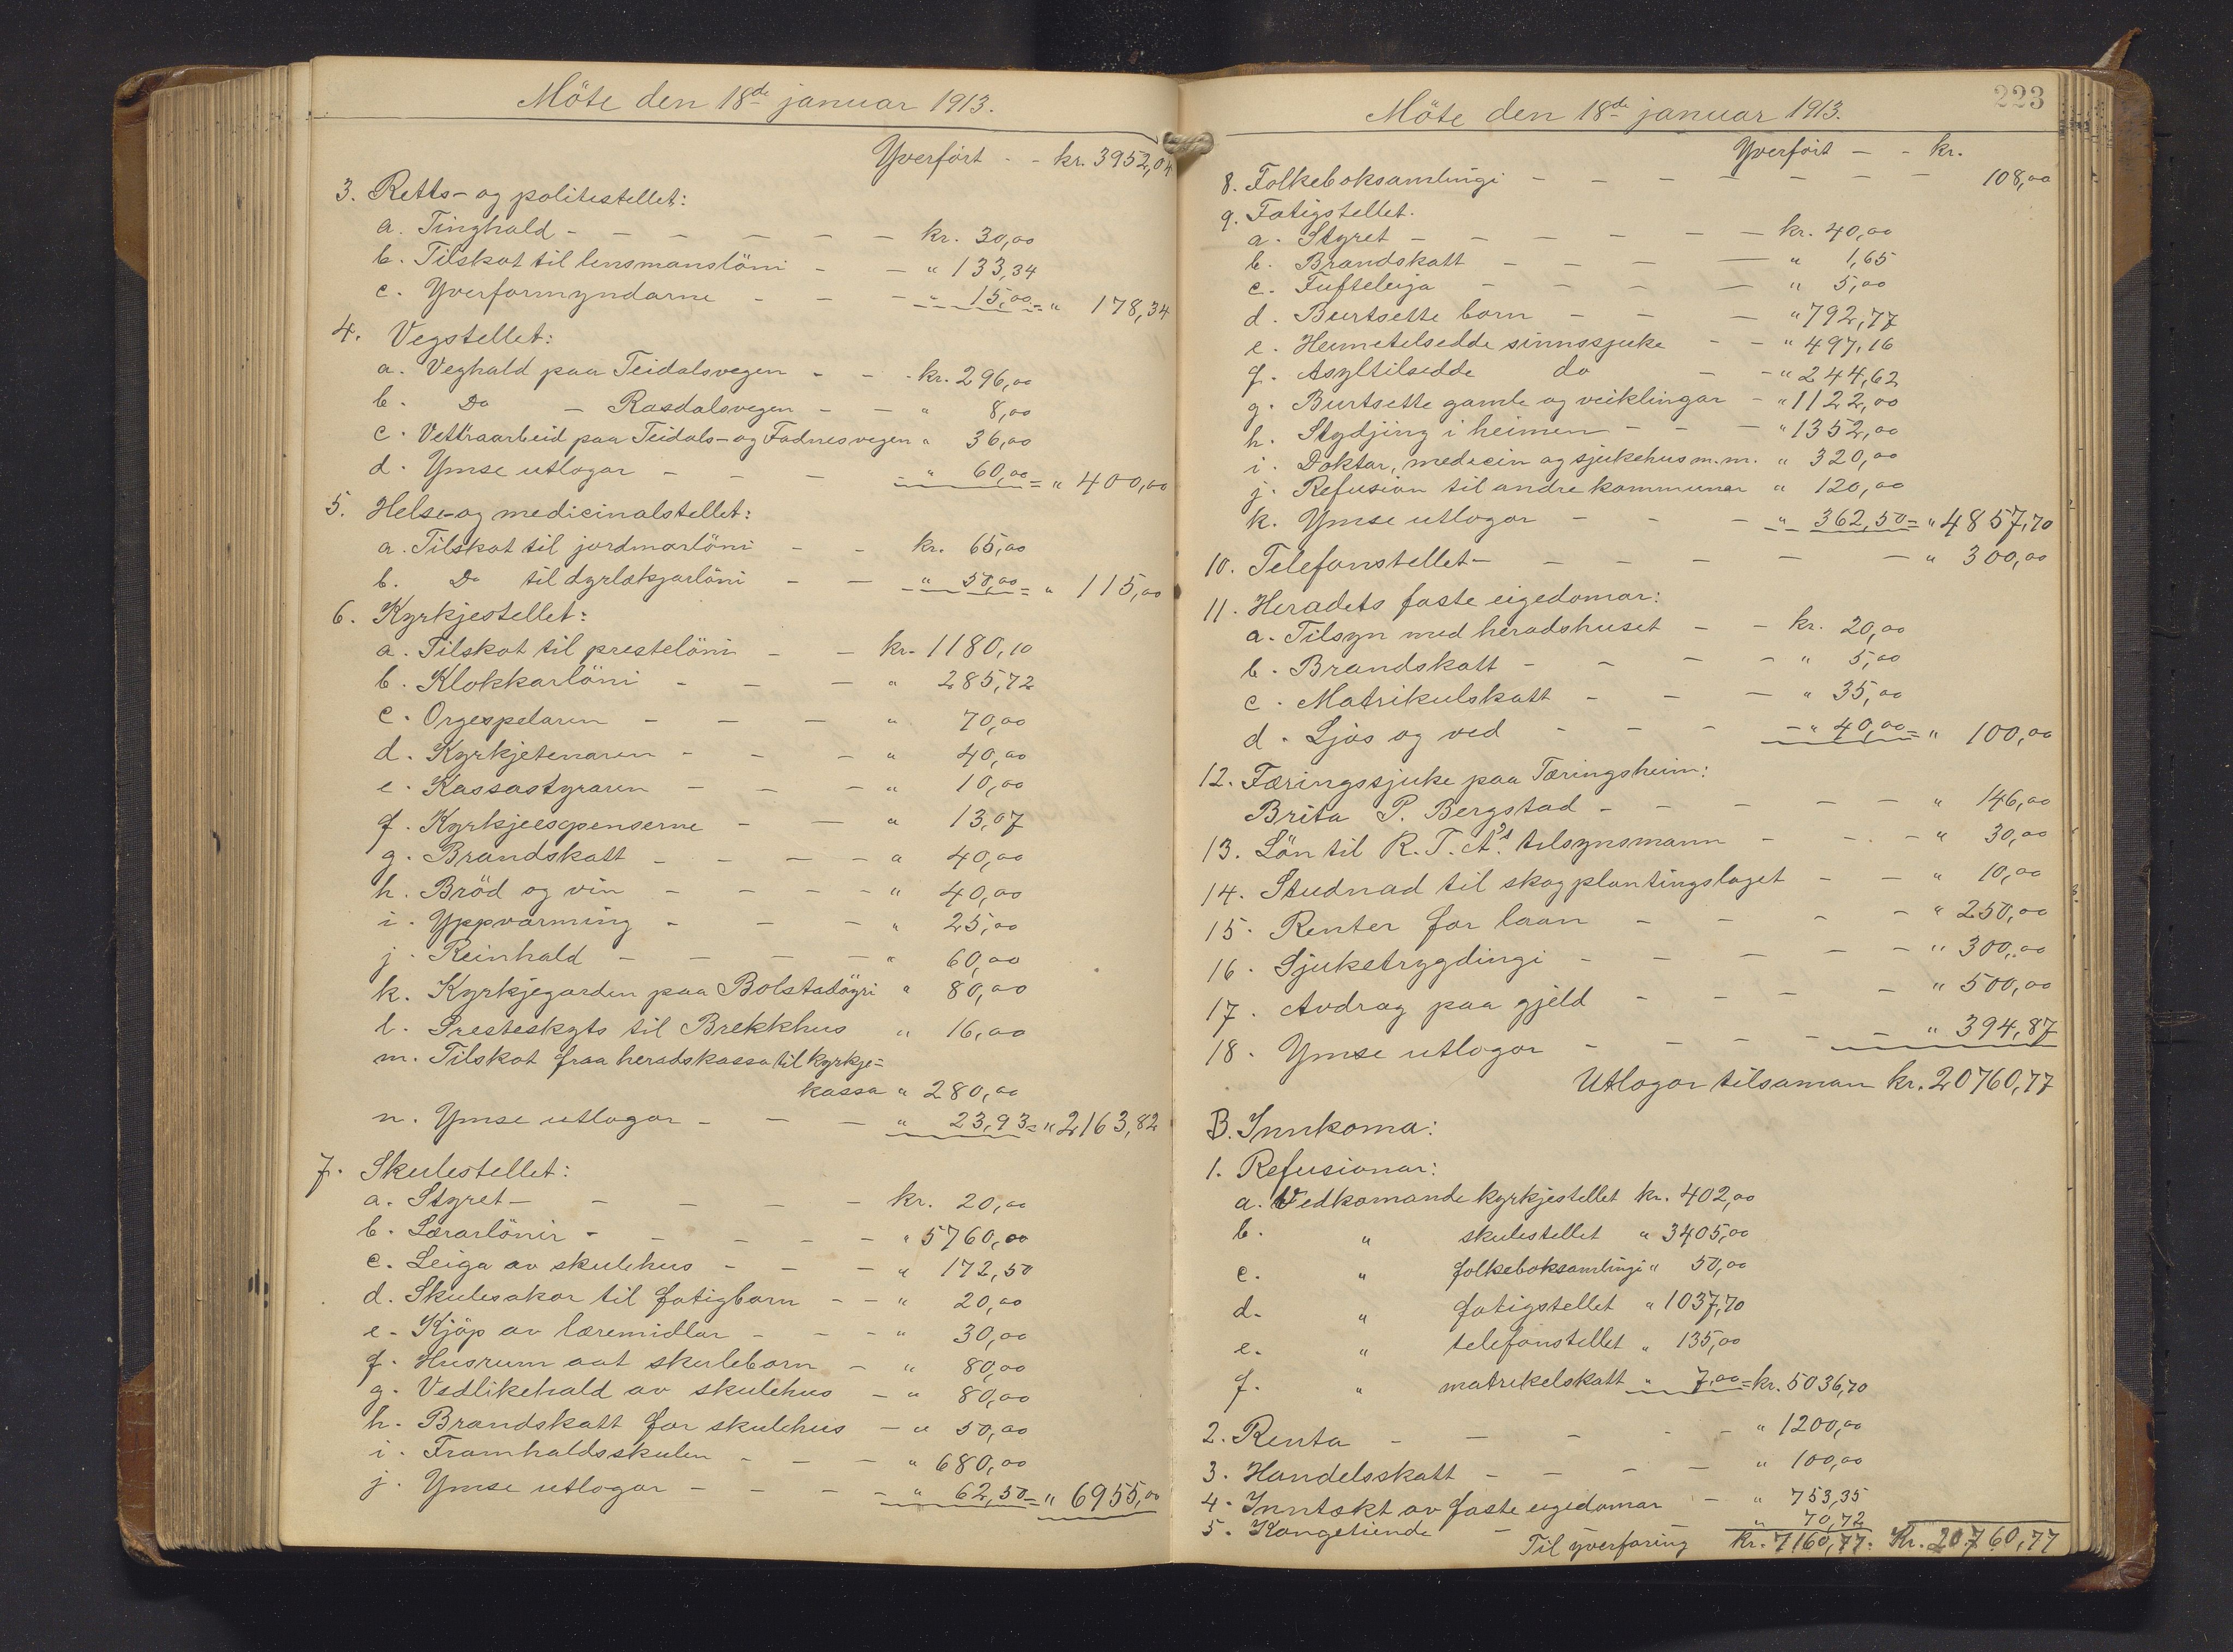 Möte den 18de januar 1913.
Yverfört - - kr. 3952,04
3. Retts- og politistellet:
a. Tinghald - - - - - - kr. 30,00
b. Tilskot til lensmanslöni - - " 133,34
c. Yverformyndarne - - - " 15,00 = " 178,34
4. Vegstellet:
a. Veghald paa Teidalsvegen - - kr. 296,00
b. Do - Rasdalsvegen - - " 8,00
c. Vettraarbeid paa Teidals- og Fadnesvegen " 36,00
d. Ymse utlogor - - - " 60,00 = " 400,00
5. Helse- og medicinalstellet:
a. Tilskot til jordmorlöni - - kr. 65,00
b. Do til dyrlækjarlöni - - " 50,00 = " 115,00
6. Kyrkjestellet:
a. Tilskot til prestelöni - - kr. 1180,10
b. Klokkarlöni - - - " 285,72
c. Orgespelaren - - - " 70,00
d. Kyrkjetenaren - - - " 40,00
e. Kassastyraren - - - " 10,00
f. Kyrkjeexpenserne - - " 13,07
g. Brandskatt - - - - " 40,00
h. Bröd og vin - - - - " 40,00
i. Yppvarming - - - " 25,00
j. Reinhald - - - - " 60,00
k. Kyrkjegarden paa Bolstadöyri " 80,00
l. Presteskyts til Brekkhus " 16,00
m. Tilskot fraa heradskassa til kyrkje=
kassa " 280,00
n. Ymse utlogor - - - " 23,93 = " 2163,82
7. Skulestellet:
a. Styret - - - - - kr. 20,00
b. Lærarlönir - - - - - " 5760,00
c. Leiga av skulehus - - - " 172,50
d. Skulesakor til fatigborn - - " 20,00
e. Kjöp av læremidlar - - - " 30,00
f. Husrum aat skuleborn - " 80,00
g. Vedlikehald av skulehus - " 80,00
h. Brandskatt for skulehus - " 50,00
i. Framhaldsskulen - - - " 680,00
j. Ymse utlogor - - - - " 62,50 = " 6955,00
223
Möte den 18de januar 1913.
Yverfört - - kr.
8. Folkeboksamlingi - - - - - - - 108,00
9. Fatigstellet.
a. Styret - - - - - - kr. 40,00
b. Brandskatt - - - - " 1,65
c. Tufteleiga - - - - " 5,00
d. Burtsette born - - - " 792,77
e. Heimetilsedde sinnssjuke - - " 497,16
f. Asyltilsedde do - - " 244,62
g. Burtsette gamle og veiklingar - " 1122,00
h. Stydjing i heimen - - - " 1352,00
i. Doktar, medicin og sjukehus m.m. " 320,00
j. Refusion til andre kommunar " 120,00
k. Ymse utlogor - - - " 362,50 = " 4857,70
10. Telefonstellet - - - - - - " 300,00
11. Heradets faste eigedomar:
a. Tilsyn med heradshuset - - kr. 20,00
b. Brandskatt - - - - " 5,00
c. Matrikulskatt - - - " 35,00
d. Ljos og ved - - - - " 40,00 = " 100,00
12. Tæringssjuke paa Tæringsheim:
Brita P. Bergstad - - - - - " 146,00
13. Lön til R. T. A's tilsynsmann - - - " 30,00
14. Studnad til skogplantingslaget - - " 10,00
15. Renter for laan - - - - " 250,00
16. Sjuketrygdingi - - - - - " 300,00
17. Avdrag paa gjeld - - - - " 500,00
18. Ymse utlogor - - - - - " 394,87
Utlogor tilsaman kr. 20760,77
B. Innkoma:
1. Refusionar:
a. Vedkomande kyrkjestellet kr. 402,00
b. " skulestellet " 3405,00
c. " folkeboksamlingi " 50,00
d. " fatigstellet " 1037,70
e. " telefonstellet " 135,00
f. " matrikelskatt " 7,00 = kr. 5036,70
2. Renta - - - - - " 1200,00
3. Handelsskatt - - - - " 100,00
4. Inntækt av faste eigedomar - " 753,35
5. Kongetiende - - " 70,72
Til yverföring kr. 7160,77. Kr. 20760,77